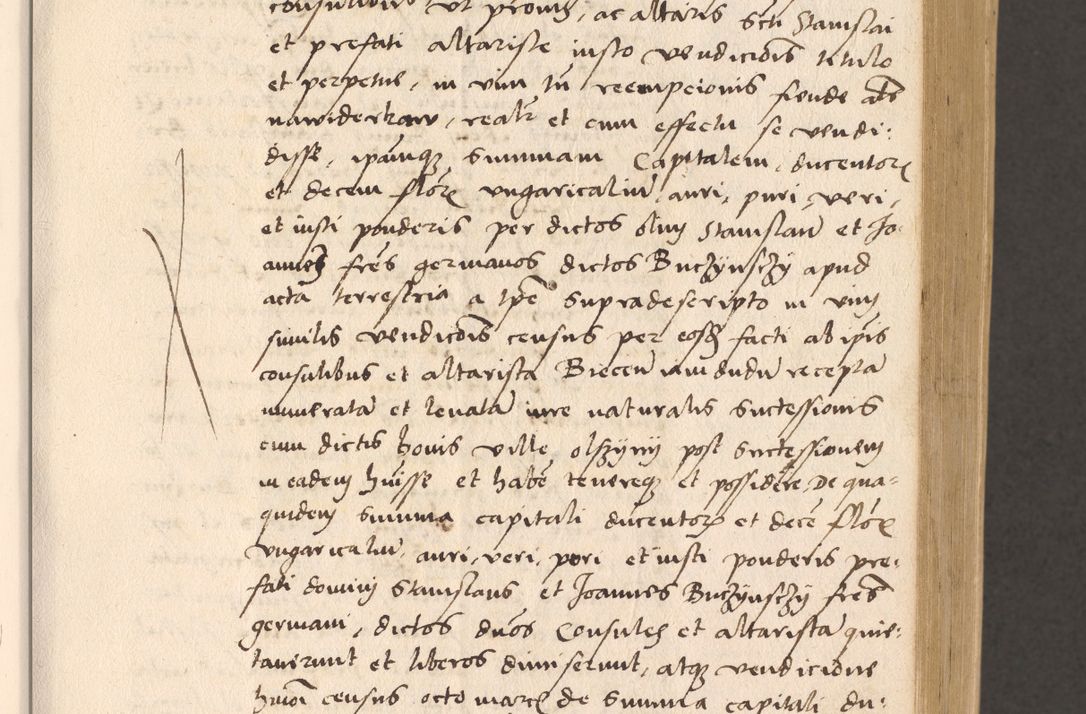 consulibus ut promiss, ac altaris Scti Stanislai
et prefati altariste iusto vendiciois titulo
et perpetue, in vim tn reempcionis fiende als
nawiderkaw, realr et cum effectu se vendi:
disse, ipamqz summam Capitalem, ducentorz
et decem florz vngaricaliu, auri, puri, veri,
et iusti ponderis per dictos olim Stanislau et Jo-
annez fres germanos dictos Buczynsczy apud
acta terrestria a tpe supradescripto in vim
similis vendiciois census per eosd facti ab ipis
consulibus et altarista Biecen iamdudu recepta
numerata et leuata iure naturalis successionis
cum dictis bonis ville olszyny post successionem
in eadem huisse et habe tenereqz et possidere, De qua-
quidem summa capitali ducentorz et dece florz
vngaricaliu, auri, veri, puri et iusti ponderis pre-
fati domini Stanislaus et Joannes Buczynsczy fres
germani, dictos duos Consules et altarista quie-
tauerunt et liberos dimiserunt, atqz vendicione
hmoi census octo marcz de summa capitali du-